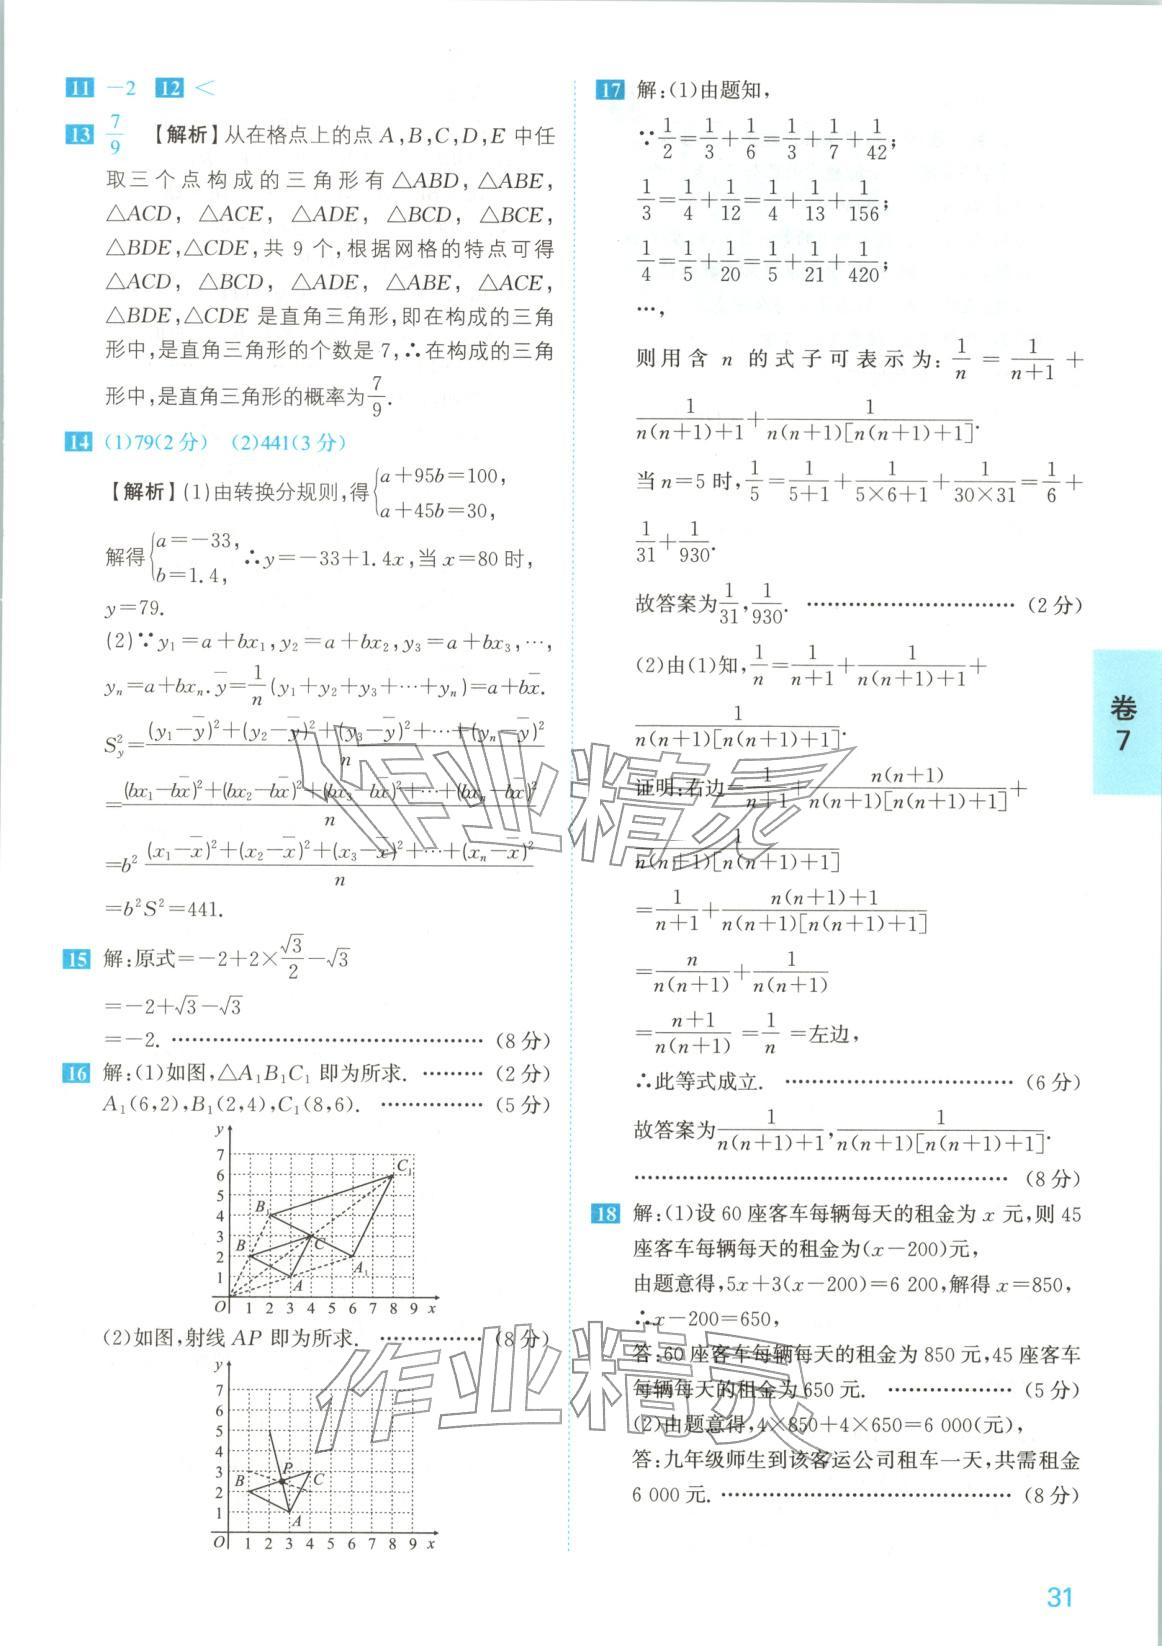 11 －2 12 <
13 7/9 【解析】从在格点上的点 A,B,C,D,E 中任
取三个点构成的三角形有△ABD,△ABE,
△ACD, △ACE, △ADE, △BCD, △BCE,
△BDE,△CDE,共 9 个,根据网格的特点可得
△ACD, △BCD, △ADE, △ABE, △ACE,
△BDE,△CDE 是直角三角形,即在构成的三角
形中,是直角三角形的个数是 7,∴在构成的三角
形中,是直角三角形的概率为7/9.
14 (1)79(2 分) (2)441(3 分)
【解析】(1)由转换分规则,得{a＋95b＝100,
a＋45b＝30,
解得{a＝－33,
b＝1.4, ∴y＝－33＋1.4x,当 x＝80 时,
y＝79.
(2)∵y₁＝a＋bx₁,y₂＝a＋bx₂,y₃＝a＋bx₃,⋯,
yₙ＝a＋bxₙ.y̅＝1/n(y₁＋y₂＋y₃＋⋯＋yₙ)＝a＋bx̅.
S²ᵧ＝[(y₁－y̅)²＋(y₂－y̅)²＋(y₃－y̅)²＋⋯＋(yₙ－y̅)²]/n
＝[(bx₁－bx̅)²＋(bx₂－bx̅)²＋(bx₃－bx̅)²＋⋯＋(bxₙ－bx̅)²]/n
＝b² [(x₁－x̅)²＋(x₂－x̅)²＋(x₃－x̅)²＋⋯＋(xₙ－x̅)²]/n
＝b²S²＝441.
15 解:原式＝－2＋2×√3/2－√3
＝－2＋√3－√3
＝－2. ⋯⋯⋯⋯⋯⋯⋯⋯⋯⋯ (8 分)
16 解:(1)如图,△A₁B₁C₁ 即为所求. ⋯⋯⋯ (2 分)
A₁(6,2),B₁(2,4),C₁(8,6). ⋯⋯⋯⋯⋯ (5 分)
y
7
6
5
4
3
2
1
C₁
B₁
B
C
A₁
A
O 1 2 3 4 5 6 7 8 9 x
(2)如图,射线 AP 即为所求. ⋯⋯⋯⋯⋯ (8 分)
y
7
6
5
4
3
2
1
P
B
C
A
O 1 2 3 4 5 6 7 8 9 x
17 解:(1)由题知,
∵1/2＝1/3＋1/6＝1/3＋1/7＋1/42;
1/3＝1/4＋1/12＝1/4＋1/13＋1/156;
1/4＝1/5＋1/20＝1/5＋1/21＋1/420;
⋯,
则用含 n 的式子可表示为: 1/n ＝ 1/(n＋1) ＋
1/[n(n＋1)＋1]＋1/{n(n＋1)[n(n＋1)＋1]}.
当 n＝5 时,1/5＝1/(5＋1)＋1/(5×6＋1)＋1/(30×31)＝1/6＋
1/31＋1/930.
故答案为1/31,1/930. ⋯⋯⋯⋯⋯⋯⋯⋯ (2 分)
(2)由(1)知,1/n＝1/(n＋1)＋1/[n(n＋1)＋1]＋
1/{n(n＋1)[n(n＋1)＋1]}.
证明:右边＝1/(n＋1)＋n(n＋1)/{n(n＋1)[n(n＋1)＋1]}＋
1/{n(n＋1)[n(n＋1)＋1]}
＝1/(n＋1)＋[n(n＋1)＋1]/{n(n＋1)[n(n＋1)＋1]}
＝n/[n(n＋1)]＋1/[n(n＋1)]
＝(n＋1)/[n(n＋1)] ＝1/n ＝左边,
∴此等式成立. ⋯⋯⋯⋯⋯⋯⋯⋯ (6 分)
故答案为1/[n(n＋1)＋1],1/{n(n＋1)[n(n＋1)＋1]}.
⋯⋯⋯⋯⋯⋯⋯⋯⋯⋯⋯⋯⋯ (8 分)
18 解:(1)设 60 座客车每辆每天的租金为 x 元,则 45
座客车每辆每天的租金为(x－200)元,
由题意得,5x＋3(x－200)＝6 200,解得 x＝850,
∴x－200＝650,
答:60 座客车每辆每天的租金为 850 元,45 座客车
每辆每天的租金为 650 元. ⋯⋯⋯⋯⋯ (5 分)
(2)由题意得,4×850＋4×650＝6 000(元),
答:九年级师生到该客运公司租车一天,共需租金
6 000 元. ⋯⋯⋯⋯⋯⋯⋯⋯⋯⋯ (8 分)
卷
7
作业精灵
作业精灵
31